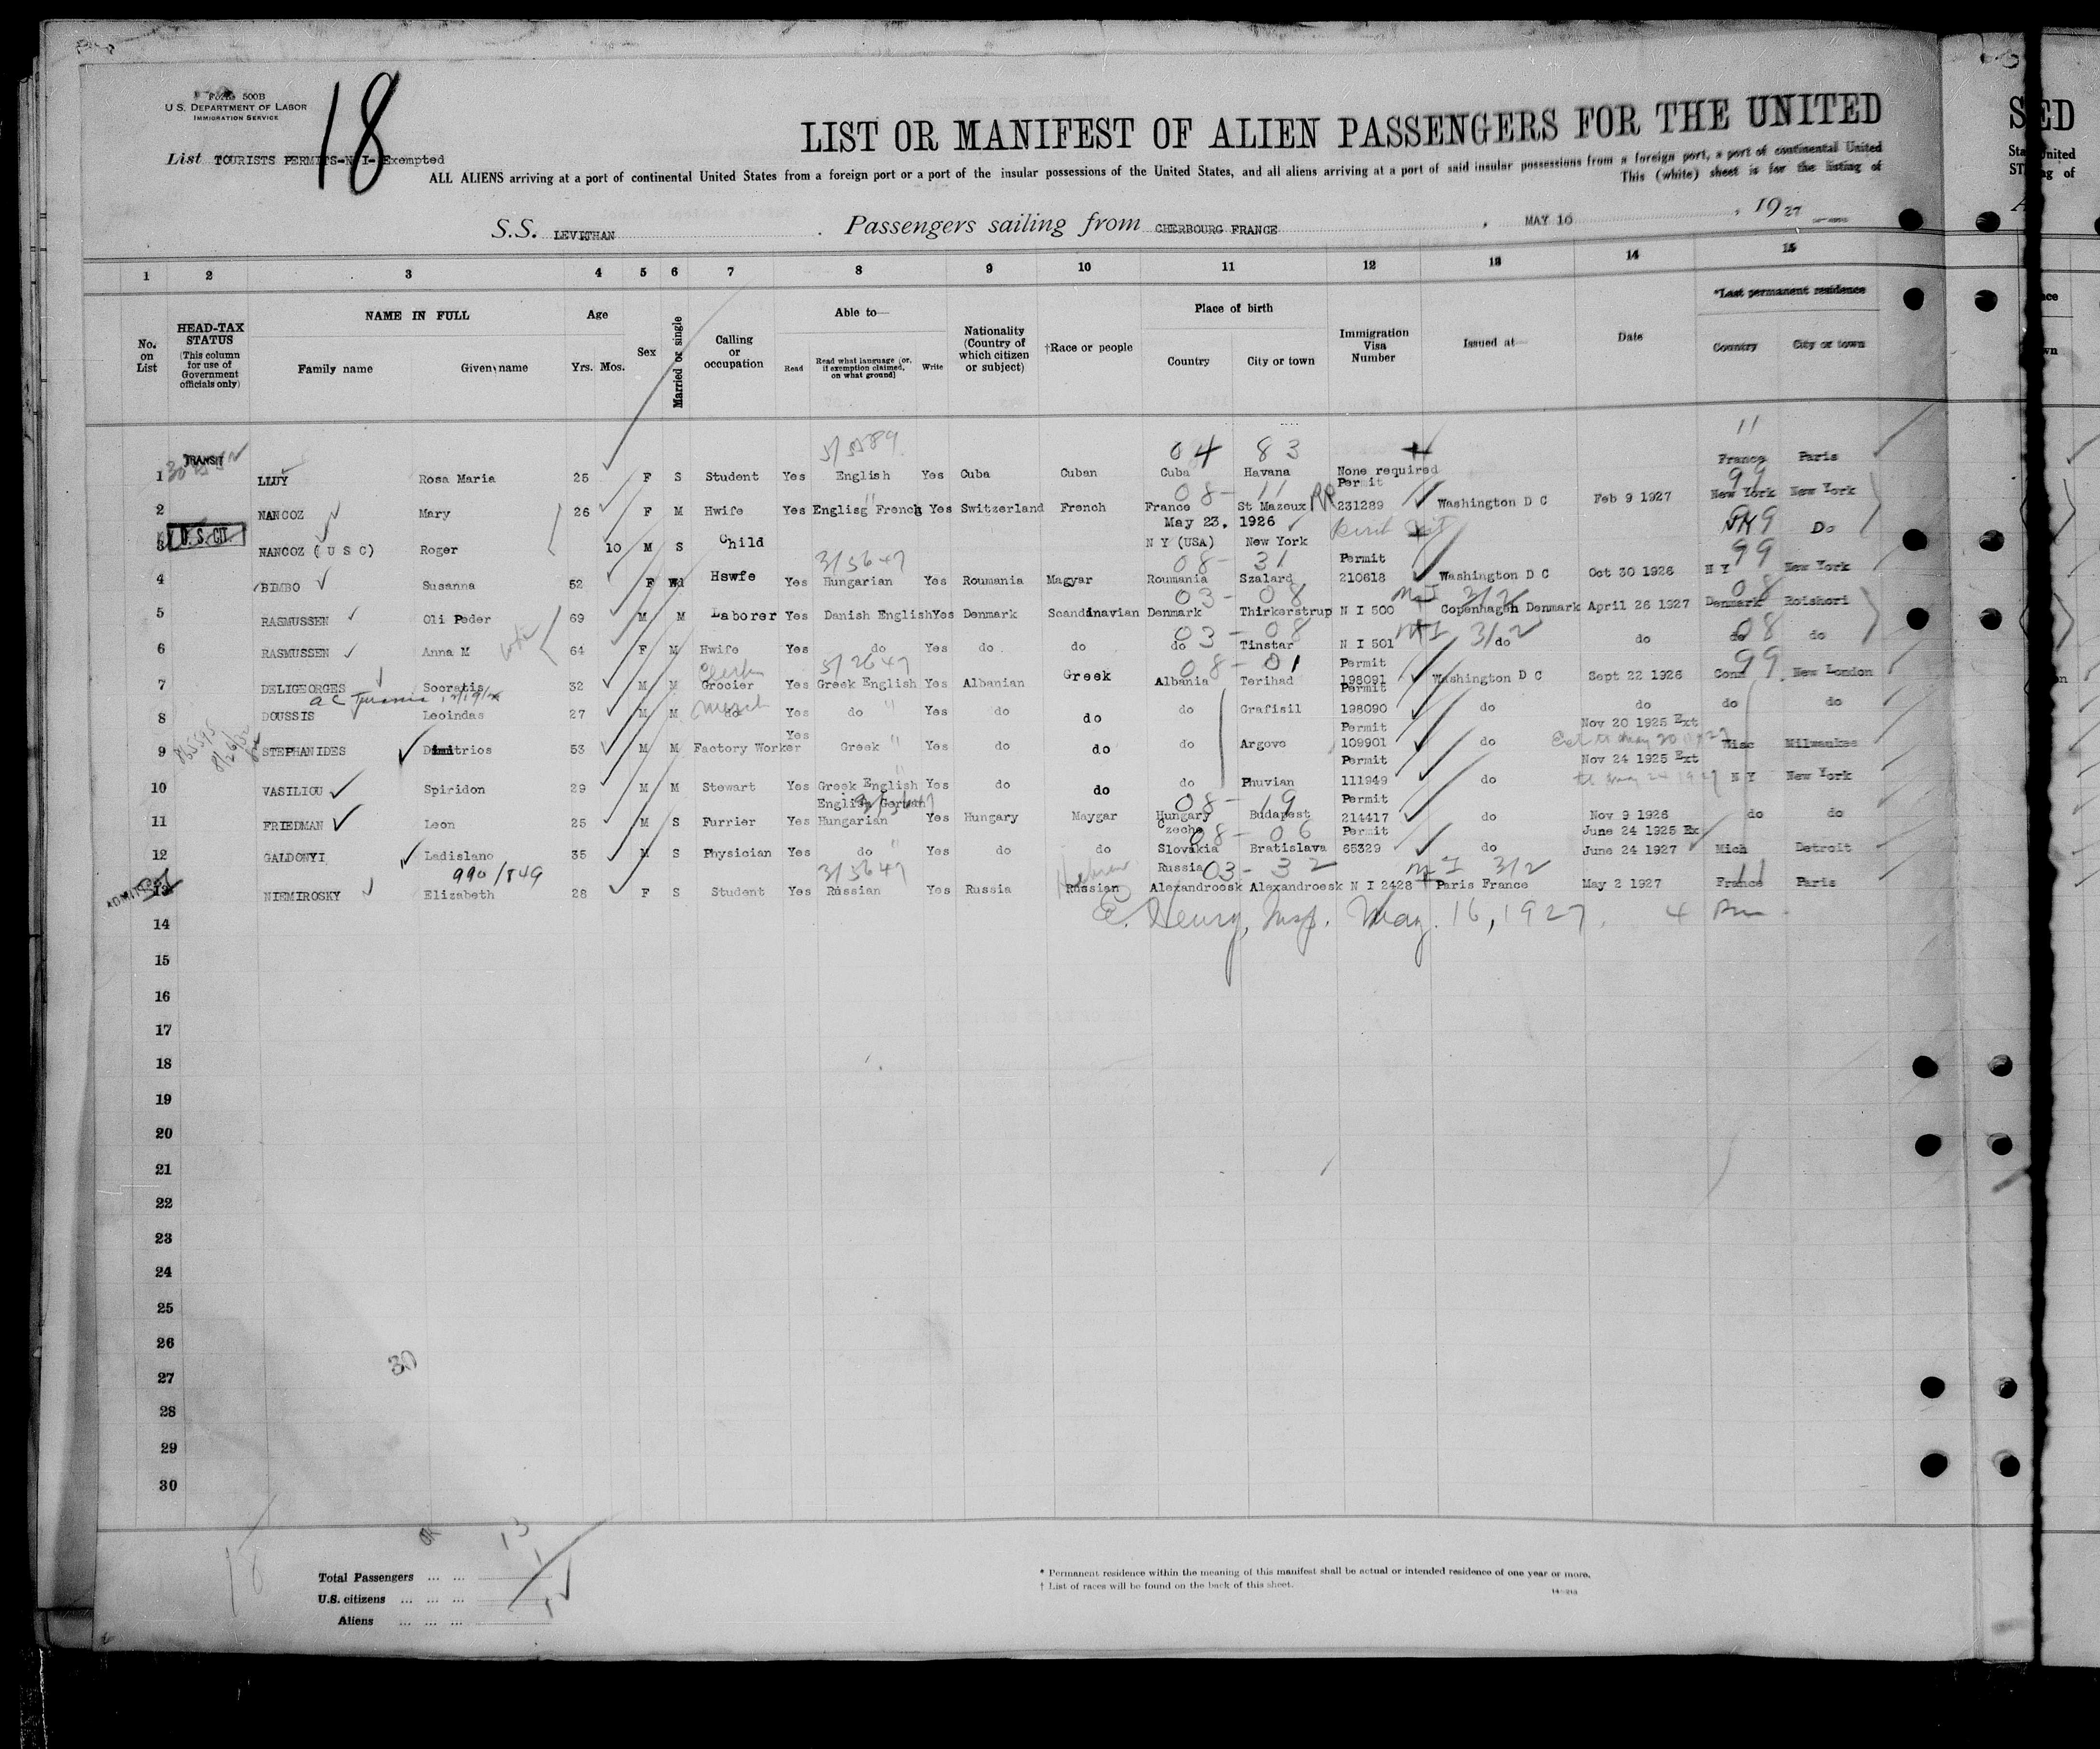 Form 500B
U.S. DEPARTMENT OF LABOR
IMMIGRATION SERVICE
18
List TOURISTS PERMITS-N I- Exempted
LIST OR MANIFEST OF ALIEN PASSENGERS FOR THE UNITED
ALL ALIENS arriving at a port of continental United States from a foreign port or a port of the insular possessions of the United States, and all aliens arriving at a port of said insular possessions from a foreign port, a port of continental United
This (white) sheet is for the listing of
S.S. LEVITHAN Passengers sailing from CHERBOURG FRANCE, MAY 10, 1927
1 2 3 4 5 6 7 8 9 10 11 12 13 14 15
No. on List
HEAD-TAX STATUS (This column for use of Government officials only)
NAME IN FULL
Family name Given name
Age
Yrs. Mos.
Sex
Married or single
Calling or occupation
Able to—
Read
Read what language (or, if exemption claimed, on what ground)
Write
Nationality (Country of which citizen or subject)
†Race or people
Place of birth
Country City or town
Immigration Visa Number
Issued at—
Date
*Last permanent residence
Country City or town
5/5589 04 83 11
TRANSIT
1 LLUY Rosa Maria 25 F S Student Yes English Yes Cuba Cuban Cuba Havana None required France Paris
08- 11 99
2 NANCOZ Mary 26 F M Hwife Yes Englisg French Yes Switzerland French France St Mazoux Permit 231289 Washington D C Feb 9 1927 New York New York
U.S. CIT. May 23, 1926
3 NANCOZ (U S C) Roger 10 M S Child N Y (USA) New York Do
3/5647 08- 31 99
4 BIMBO Susanna 52 F Wd Hswfe Yes Hungarian Yes Roumania Magyar Roumania Szalard Permit 210618 Washington D C Oct 30 1926 N Y New York
03- 08 NI 3/2 08
5 RASMUSSEN Oli Peder 69 M M Laborer Yes Danish English Yes Denmark Scandinavian Denmark Thirkerstrup N I 500 Copenhagen Denmark April 26 1927 Denmark Roishori
03-08 NI 3/2 08
6 RASMUSSEN Anna M 64 F M Hwife Yes do Yes do do do Tinstar N I 501 do do do do
Clerk 5/2647 08-01 99
7 DELIGEORGES Socratis 32 M M Grocier Yes Greek English Yes Albanian Greek Albania Terihad Permit 198091 Washington D C Sept 22 1926 Conn New London
8 DOUSSIS Leoindas 27 M M do Yes do Yes do do do Grafisil Permit 198090 do do do do
9 STEPHANIDES Dimitrios 53 M M Factory Worker Yes Greek Yes do do do Argovo Permit 109901 do Nov 20 1925 Ext Wisc Milwaukee
10 VASILIOU Spiridon 29 M M Stewart Yes Greek English Yes do do do Phuvian Permit 111949 do Nov 24 1925 Ext N Y New York
08- 19
11 FRIEDMAN Leon 25 M S Furrier Yes English German Hungarian Yes Hungary Maygar Hungary Budapest Permit 214417 do Nov 9 1926 do do
08- 06
12 GALDONYI Ladislano 35 M S Physician Yes do Yes do do Czecho Slovakia Bratislava Permit 65329 do June 24 1925 Ex June 24 1927 Mich Detroit
990/849 3/5647 Hebrew 03-32 NI 3/2 11
ADMITTED
13 NIEMIROSKY Elizabeth 28 F S Student Yes Russian Yes Russia Russian Russia Alexandroesk Alexandroesk N I 2428 Paris France May 2 1927 France Paris
E. Henry, Insp. May. 16, 1927. 4 Pm
14
15
16
17
18
19
20
21
22
23
24
25
26
27
28
29
30
30
13
Total Passengers ... ...
U.S. citizens ... ... ...
Aliens ... ... ...
* Permanent residence within the meaning of this manifest shall be actual or intended residence of one year or more.
† List of races will be found on the back of this sheet.